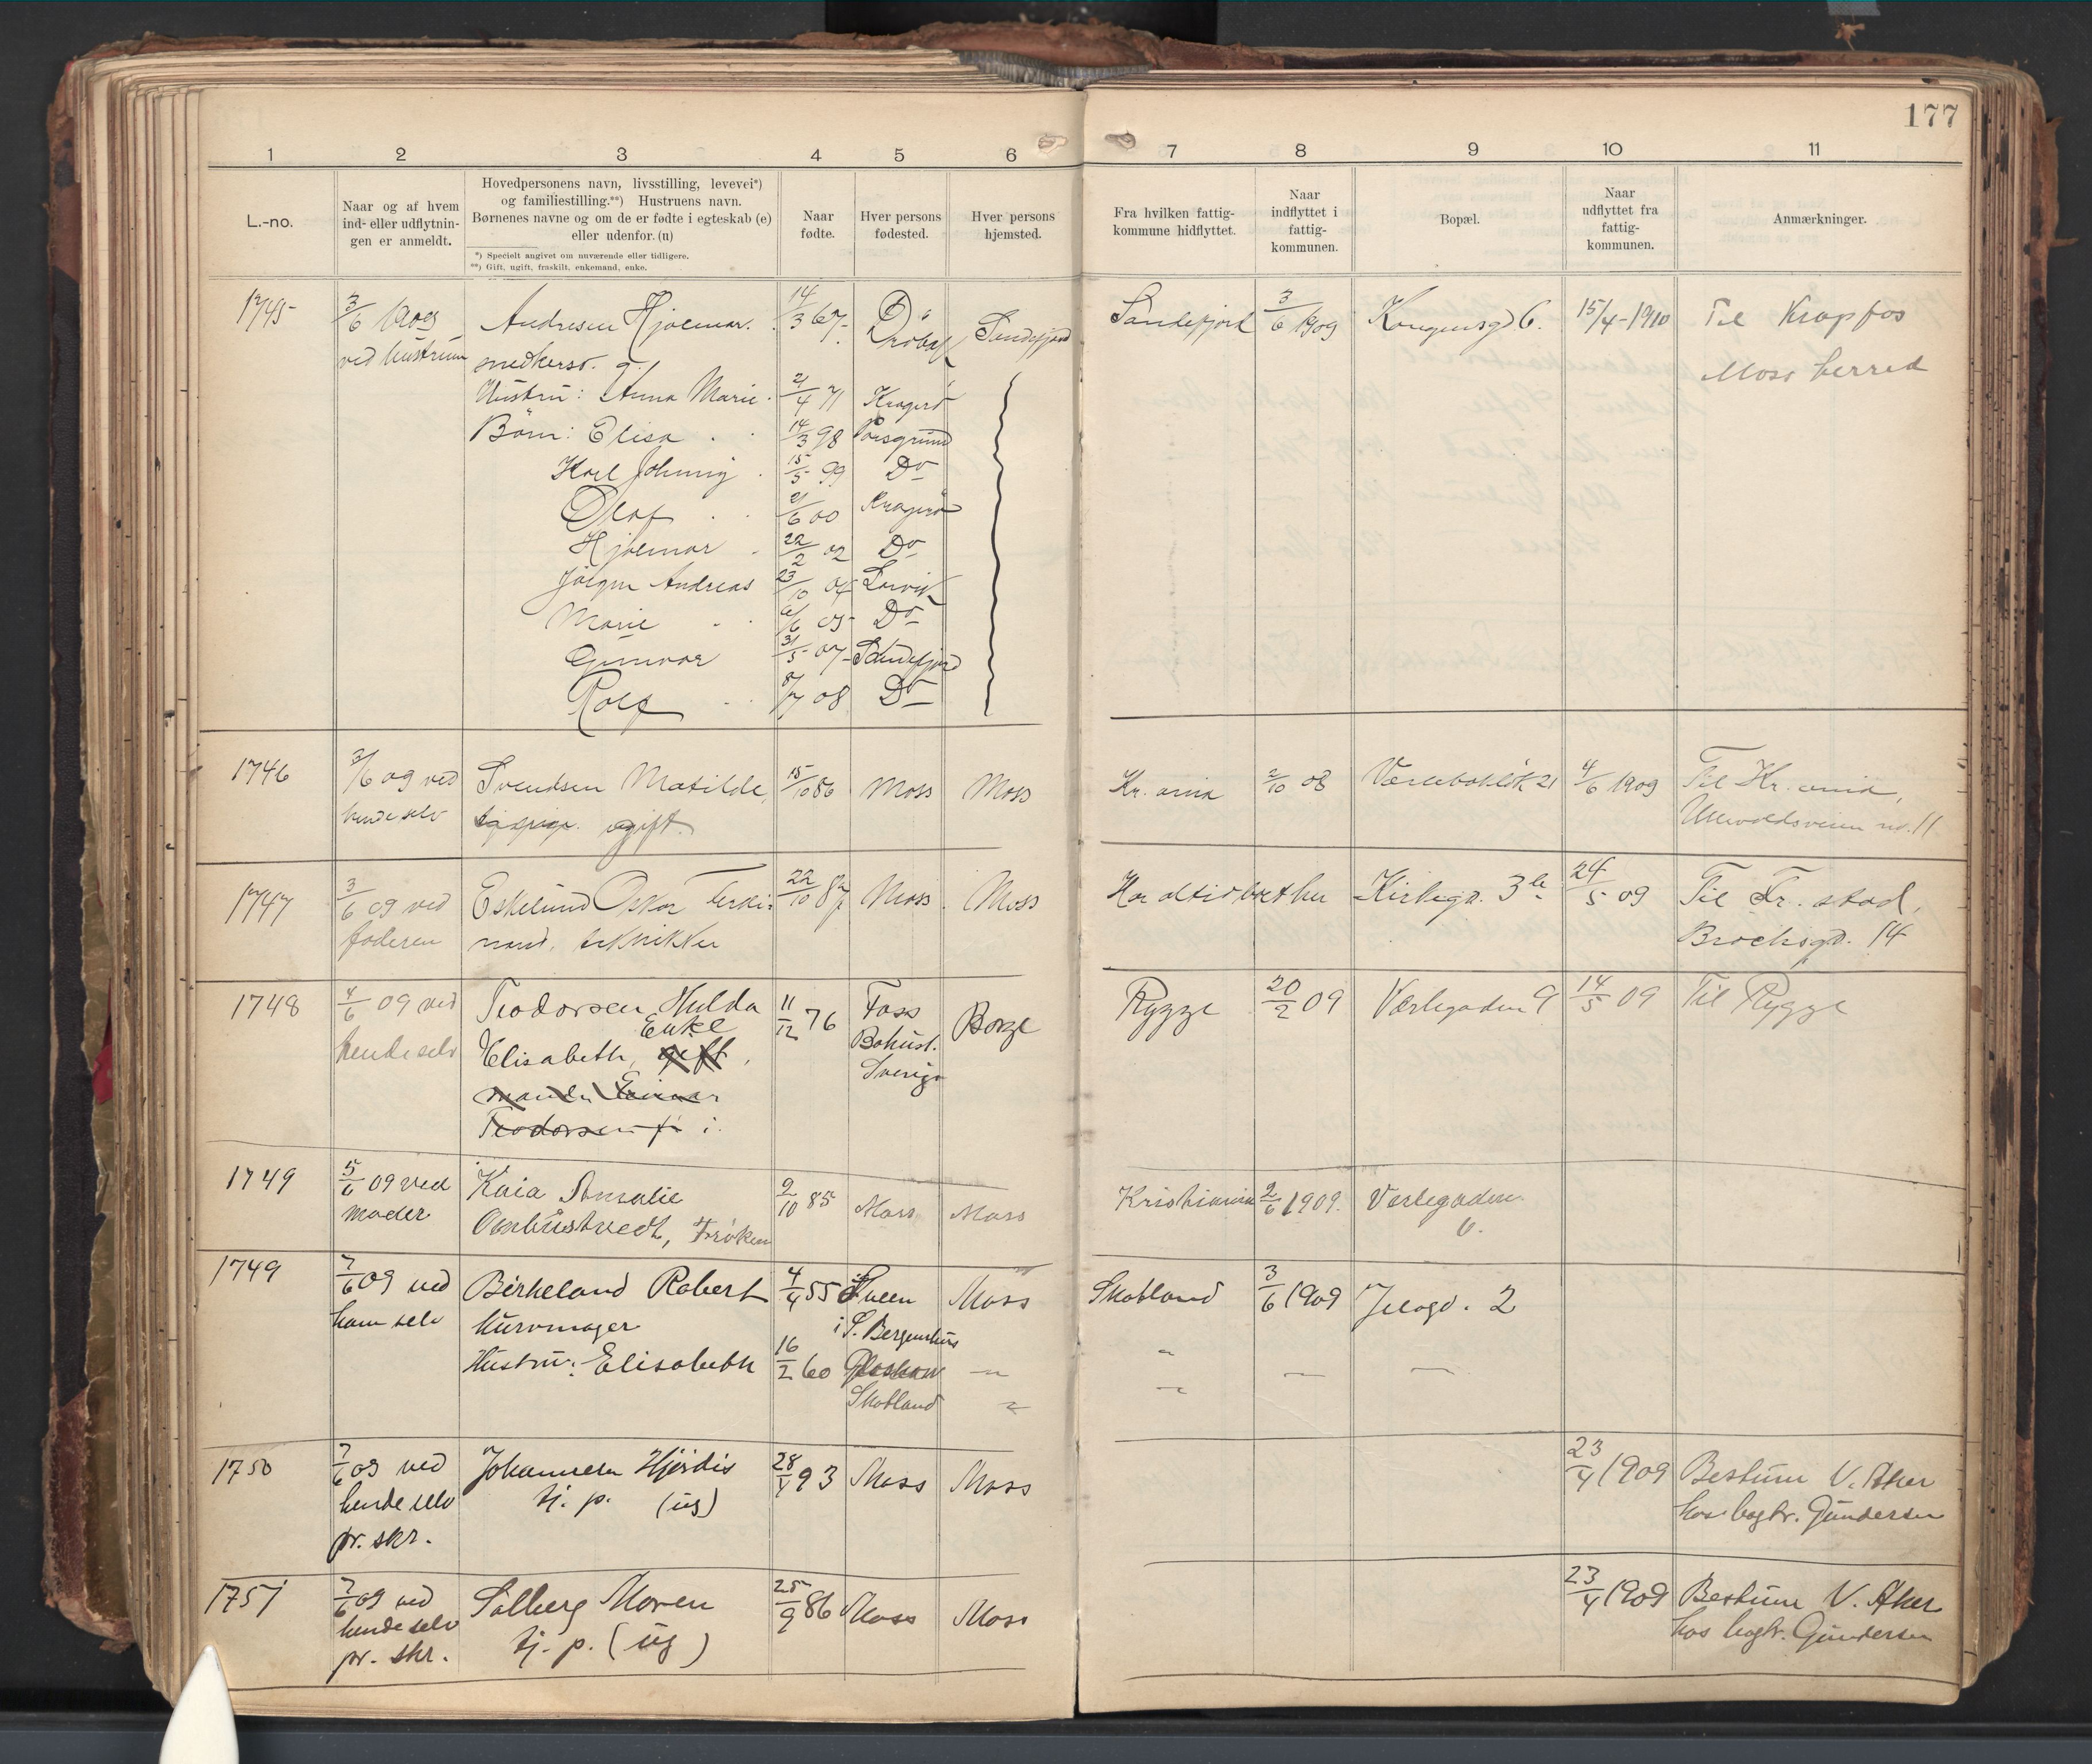 177
1 2 3 4 5 6 7 8 9 10 11
L.-no.
Naar og af hvem
ind- eller udflytnin-
gen er anmeldt.
Hovedpersonens navn, livsstilling, levevei*)
og familiestilling.**) Hustruens navn.
Børnenes navne og om de er fødte i egteskab (e)
eller udenfor. (u)
*) Specielt angivet om nuværende eller tidligere.
**) Gift, ugift, fraskilt, enkemand, enke.
Naar
fødte.
Hver persons
fødested.
Hver persons
hjemsted.
Fra hvilken fattig-
kommune hidflyttet.
Naar
indflyttet i
fattig-
kommunen.
Bopæl.
Naar
udflyttet fra
fattig-
kommunen.
Anmærkninger.
1745 3/6 1909 Andresen Hjalmar. 14/3 67 Drøbak Sandefjord Sandefjord 3/6 1909 Kongensgd. 6. 15/4-1910 Til Krapfos
ved hustruen g. Moss herred
Hustru: Anna Marie 2/4 71 Kragerø
Børn: Elisa 14/3 98 Porsgrund
Karl Johnny 15/5 99 Do
Olaf 2/6 00 Kragerø
Hjalmar 22/2 02 Do
Jørgen Andreas 23/10 04 Larvik
Marie 6/6 05 Do
Gunvor 31/5 07 Sandefjord
Rolf 8/7 08 Do
1746 3/6 09 ved Svendsen Matilde, 15/10 86 Moss Moss Kr.ania 2/10 08 21 4/6 1909 Til Kr.ania,
hende selv ugift. Ullevoldsveien no. 11
1747 3/6 09 ved Eskelund Oskar Ferdi- 22/10 87 Moss Moss Har altid boet her Kirkegd. 3 24/5 09 Til Fr.stad,
faderen nand, tekniker Brochsgd. 14
1748 4/6 09 ved Teodorsen Hulda 11/12 76 Foss Borge Rygge 20/2 09 Værlegaden 9 14/5 09 Til Rygge
Enke
hende selv Elisabeth, gift, Bohusl.
Sverige
Teodorsen
1749 5/6 09 ved Kaia Amalie 2/10 85 Moss Moss Kristiania 2/6 1909. Værlegaden
moder Ombustvedt, Frøken 6.
1749 7/6 09 ved Birkeland Robert 4/4 55 Moss Skotland 3/6 1909 Jeløgd. 2
ham selv kurvmager i S. Bergenhus
Hustru: Elisabeth 16/2 60 Glaskow
Skotland
1750 7/6 09 ved Johannesen Hjørdis 28/4 93 Moss Moss 23/4 1909 Bestum V. Aker
hende selv tj. p. (ug) hos bogtr. Gundersen
pr. skr.
1751 7/6 09 ved Solberg Maren 25/9 86 Moss Moss 23/4 1909 Bestum V. Aker
hende selv tj. p. (ug) hos bogtr. Gundersen
pr. skr.